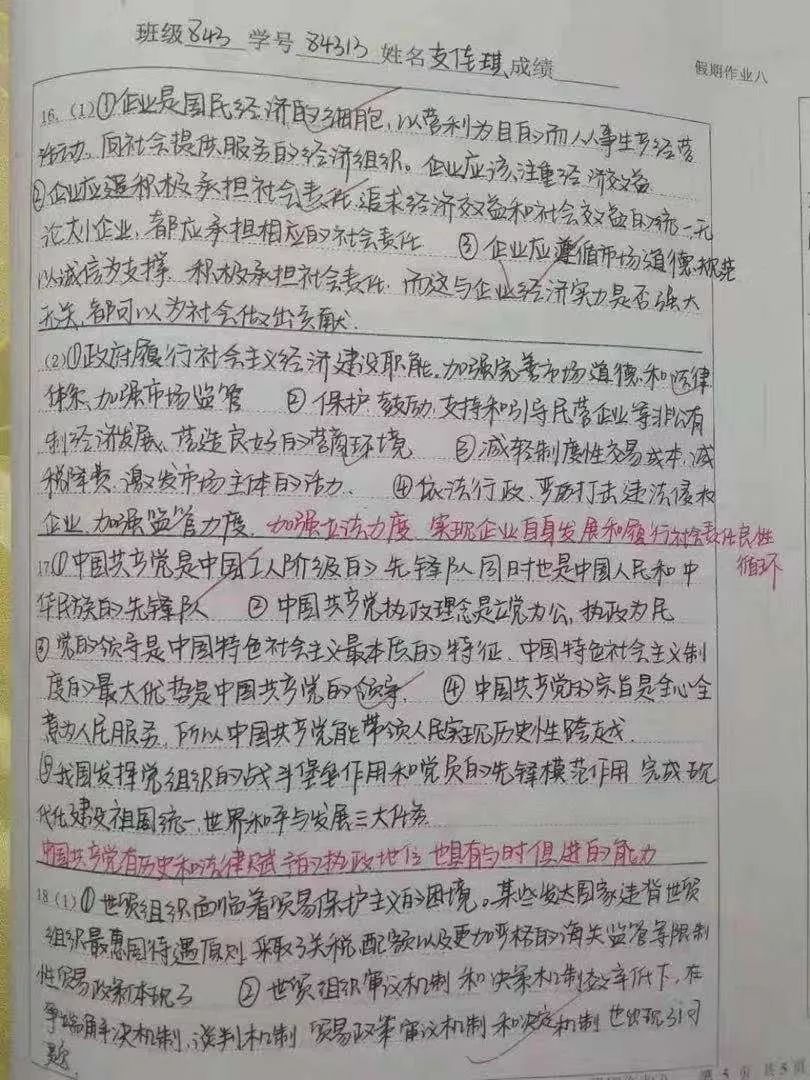 班级843 学号84313姓名支佳琪成绩
假期作业八
16.(1)①企业是国民经济的细胞,以营利为目的而从事生产经营
活动,向社会提供服务的经济组织。企业应该注重经济效益
②企业应积极承担社会责任,追求经济效益和社会效益的统一无
论大小企业,都应承担相应的社会责任 ③企业应遵循市场道德规范
以诚信为支撑,积极承担社会责任.而这与企业经济实力是否强大
无关,都可以为社会做出贡献.
(2)①政府履行社会主义经济建设职能。加强完善市场道德和法律
体系、加强市场监管 ②保护、鼓励、支持和引导民营企业等非公有
制经济发展、营造良好的营商环境 ③减轻制度性交易成本,减
税降费,激发市场主体的活力. ④依法行政、严厉打击违法侵权
企业、加强监管力度. 加强立法力度、实现企业自身发展和履行社会责任良性
循环
17.①中国共产党是中国工人阶级的先锋队同时也是中国人民和中
华民族的先锋队 ②中国共产党执政理念是立党为公,执政为民
③党的领导是中国特色社会主义最本质的特征、中国特色社会主义制
度的最大优势是中国共产党的领导. ④中国共产党的宗旨是全心全
意为人民服务,所以中国共产党能带领人民实现历史性跨越.
⑤我国发挥党组织的战斗堡垒作用和党员的先锋模范作用 完成现
代化建设祖国统一、世界和平与发展三大任务
中国共产党有历史和法律赋予的执政地位 也具有与时俱进的能力
18.(1)①世贸组织面临着贸易保护主义的困境。某些发达国家违背世贸
组织最惠国待遇原则,采取了关税,配额以及更加严格的海关监管等限制
性贸易政策体现了 ②世贸组织审议机制和决策机制效率低下,在
争端解决机制,谈判机制 贸易政策审议机制和决定机制也出现了问
题.
第 5 页 共5页